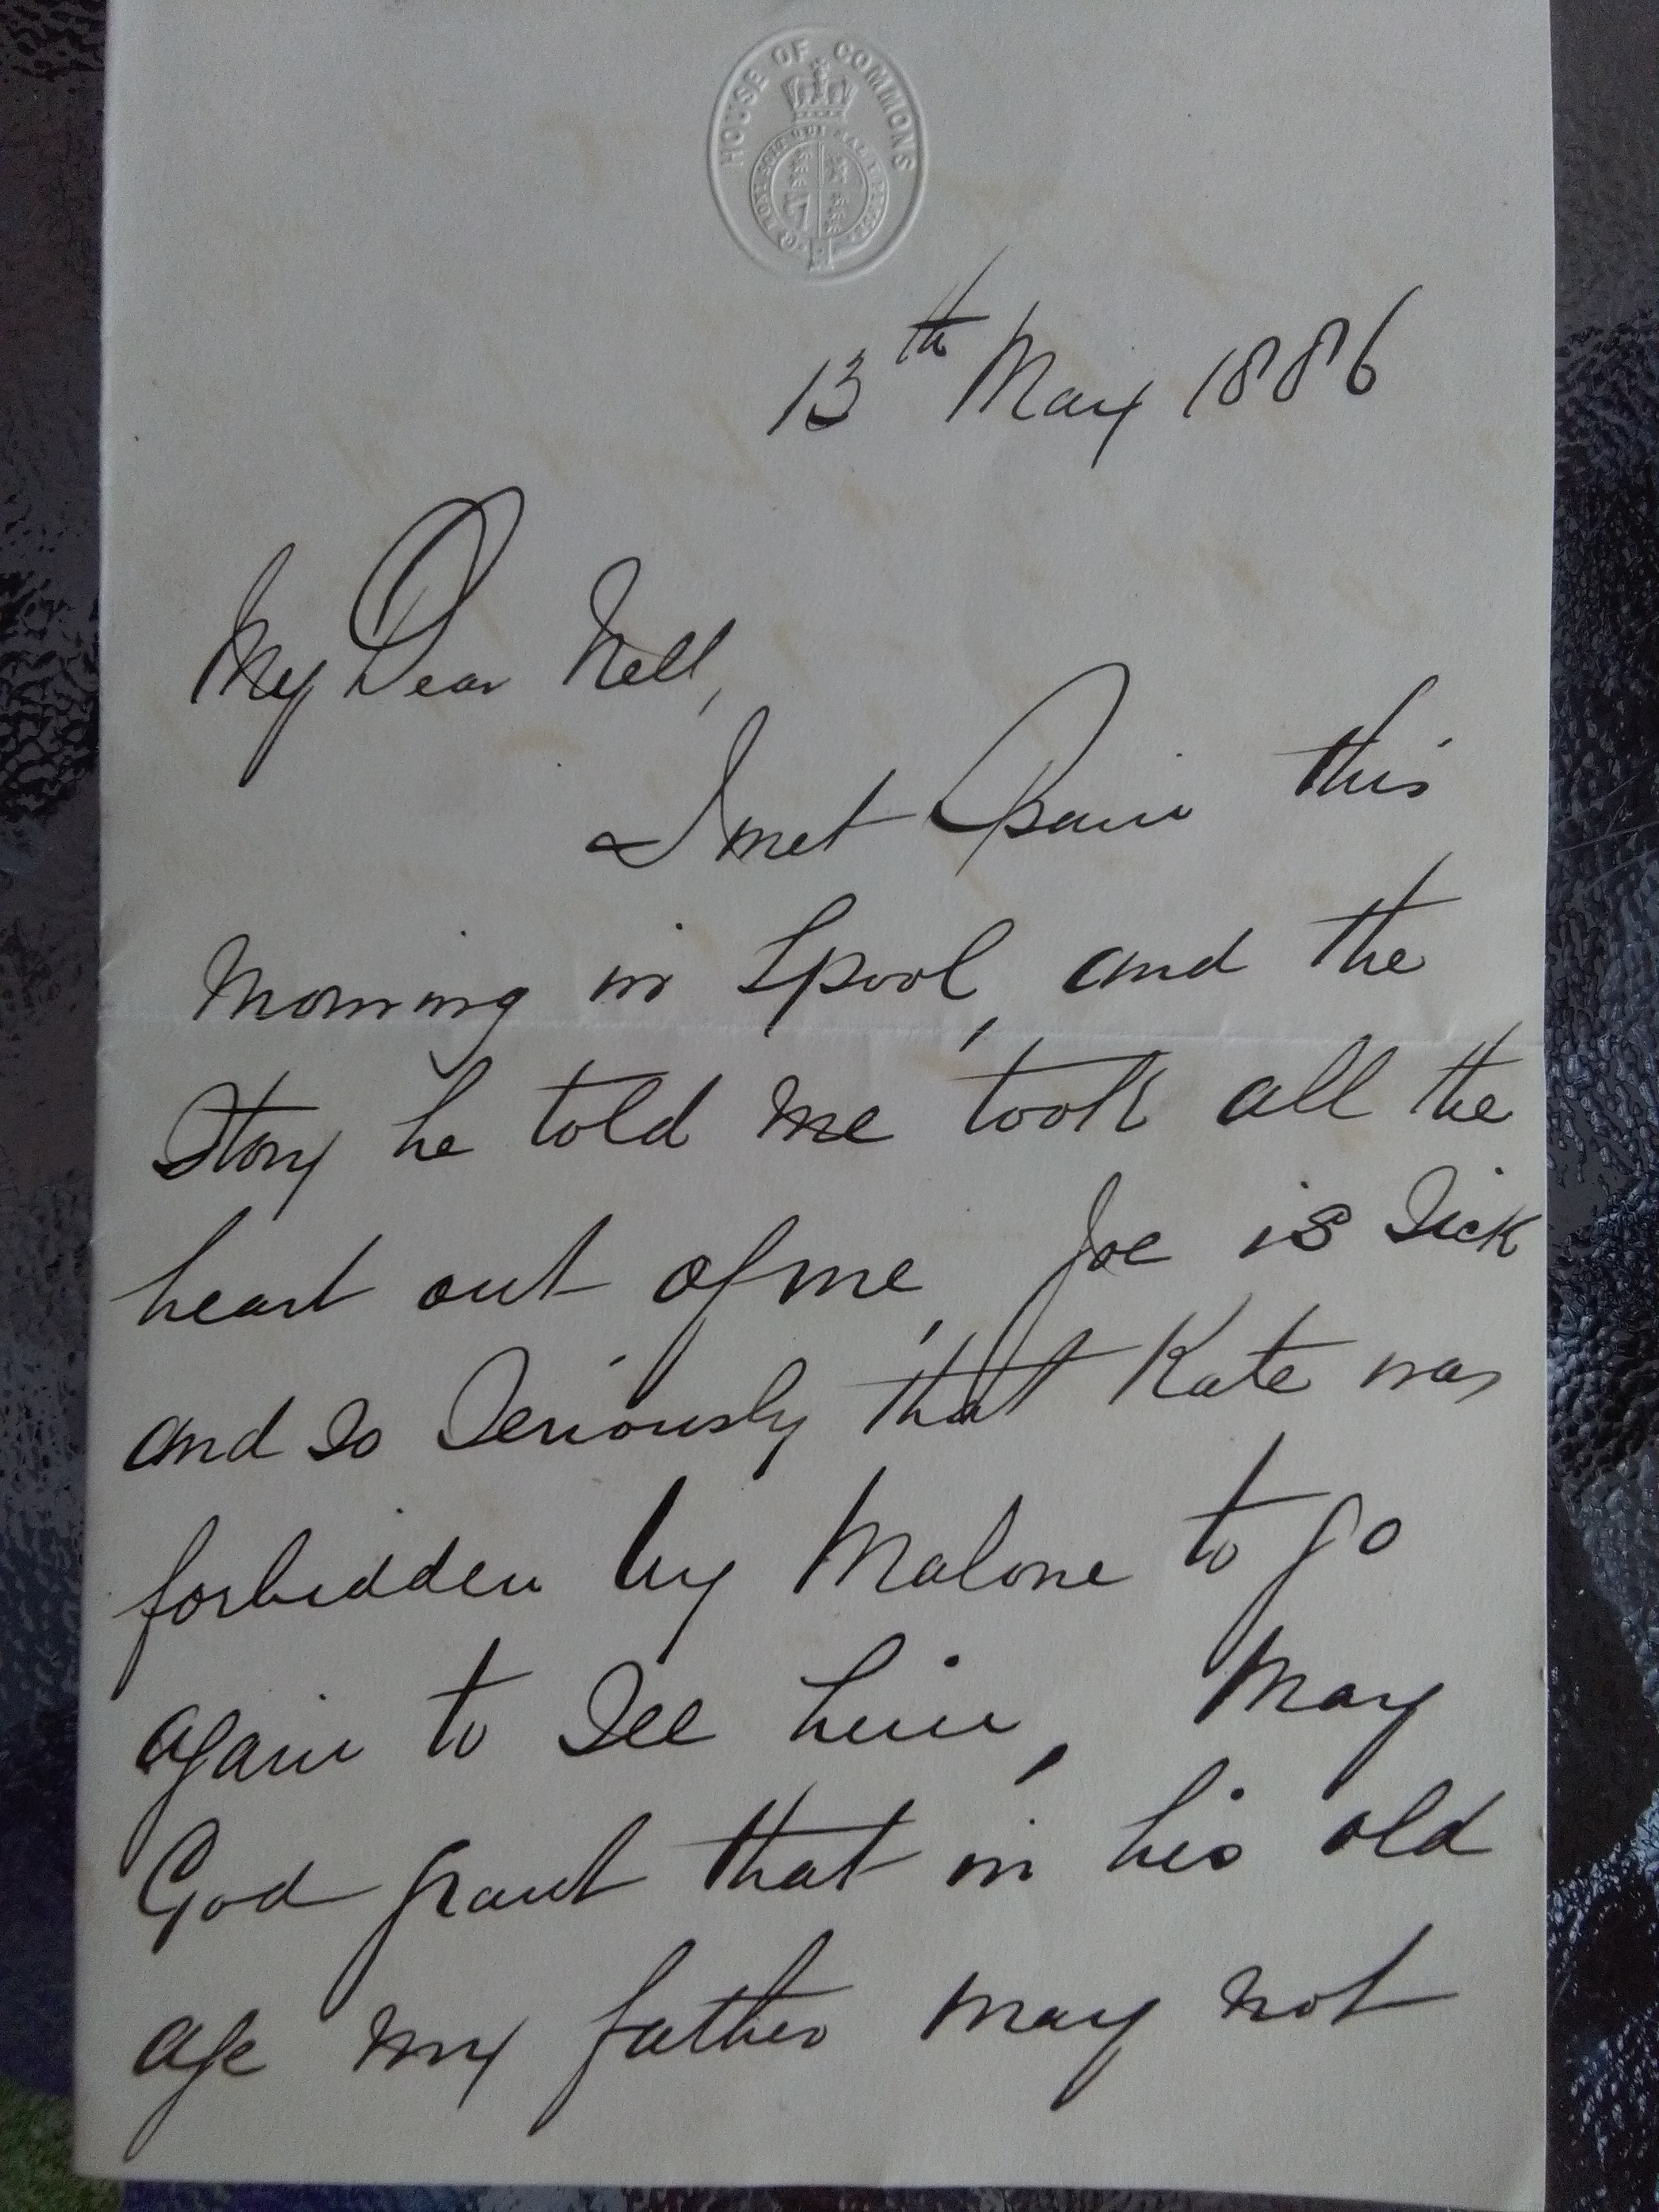 HOUSE OF COMMONS
13th May 1886
My Dear Nell,
I met this
morning in Lpool, and the
Story he told me took all the
heart out of me, Joe is Sick
and so Seriously that Kate was
forbidden by Malone to go
again to See him, May
God grant that in his old
age my father may not